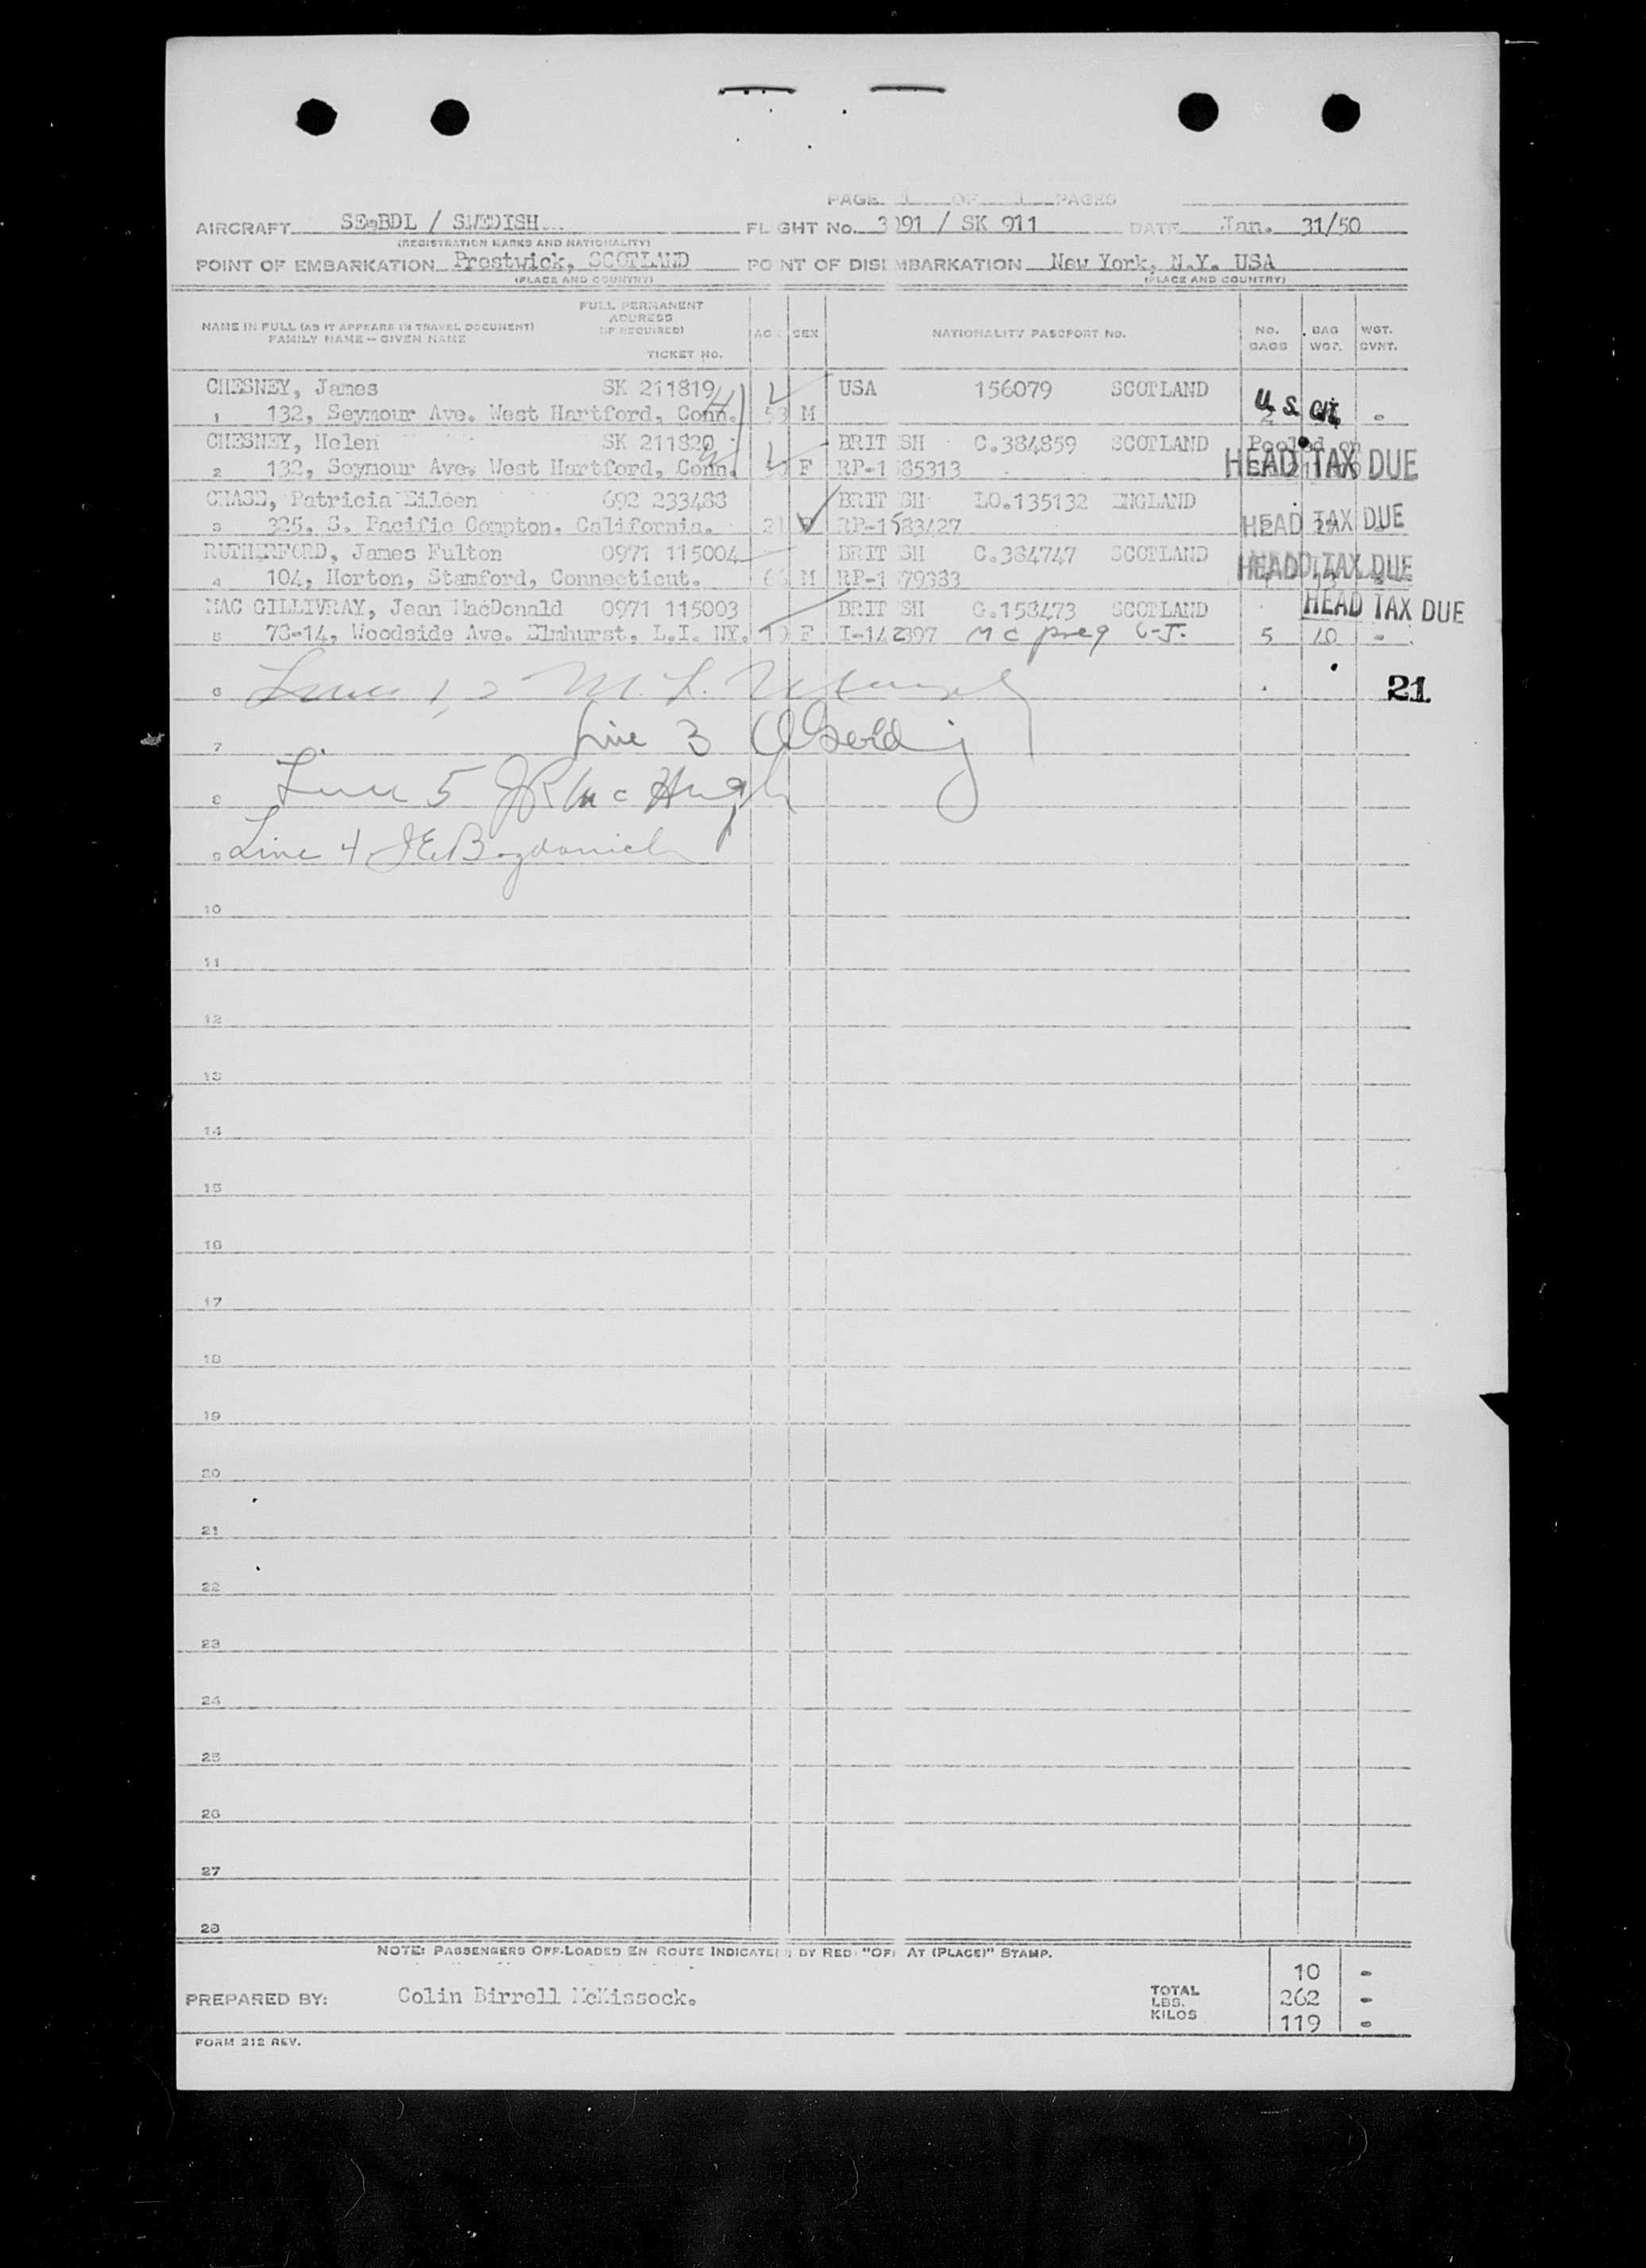 PAGE 1 OF 1 PAGES
AIRCRAFT SE-BDL / SWEDISH FLIGHT No. 3091 / SK 911 DATE Jan. 31/50
(REGISTRATION MARKS AND NATIONALITY)
POINT OF EMBARKATION Prestwick, SCOTLAND POINT OF DISEMBARKATION New York, N.Y. USA
(PLACE AND COUNTRY) (PLACE AND COUNTRY)
NAME IN FULL (AS IT APPEARS IN TRAVEL DOCUMENT) FAMILY NAME -- GIVEN NAME
FULL PERMANENT ADDRESS (IF REQUIRED)
TICKET NO.
AGE SEX NATIONALITY PASSPORT NO. NO. BAGS BAG WGT. WGT. OVNT.
CHESNEY, James SK 211819 USA 156079 SCOTLAND
1 132, Seymour Ave. West Hartford, Conn. 53 M U.S. Cit. -
CHESNEY, Helen SK 211820 BRITISH C.384859 SCOTLAND Pooled on
2 132, Seymour Ave. West Hartford, Conn. F RP-1 85313 HEAD TAX DUE
CHASE, Patricia Eileen 692 233488 BRITISH LO.135132 ENGLAND
3 325, S. Pacific Compton. California. 21 F RP-1583427 HEAD TAX DUE
RUTHERFORD, James Fulton 0971 115004 BRITISH C.384747 SCOTLAND
4 104, Horton, Stamford, Connecticut. 66 M RP-1 79383 HEAD TAX DUE
MAC GILLIVRAY, Jean MacDonald 0971 115003 BRITISH C.158473 SCOTLAND HEAD TAX DUE
5 78-14, Woodside Ave. Elmhurst, L.I. NY. 19 F I-142397 5 40 -
6 Lines 1, 2 M. L. 21
7 Line 3
8 Line 5 JR McHugh
9 Line 4 JE Bogdanich
10
11
12
13
14
15
16
17
18
19
20
21
22
23
24
25
26
27
28
NOTE: PASSENGERS OFF-LOADED EN ROUTE INDICATED BY RED "OFF AT (PLACE)" STAMP.
10 -
PREPARED BY: Colin Birrell McKissock. TOTAL LBS. 262 -
KILOS 119 -
FORM 212 REV.